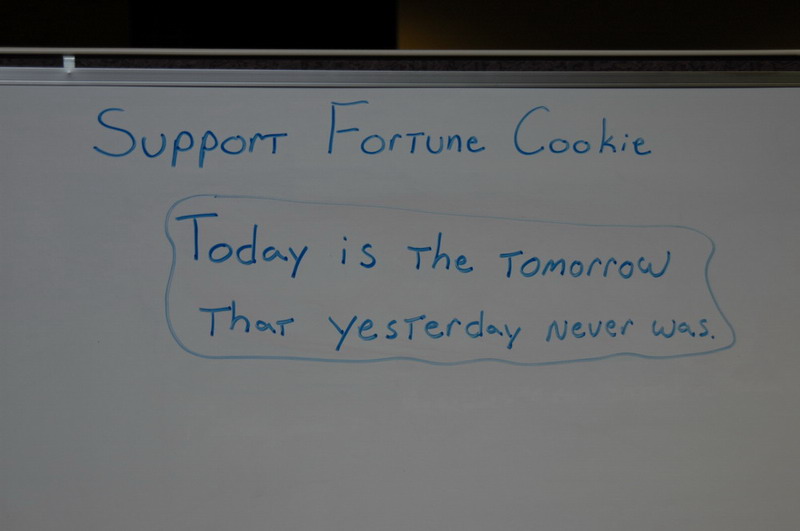 Support Fortune Cookie
Today is the tomorrow
that yesterday never was.